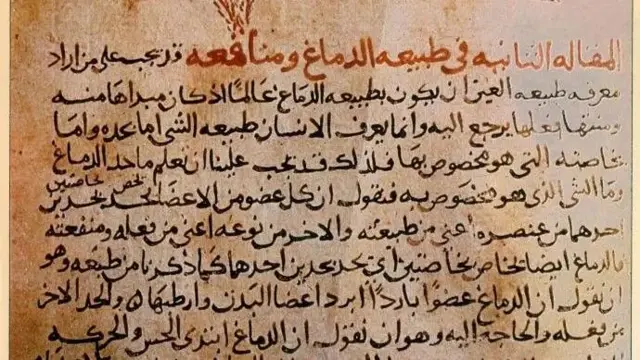 المقاله الثانيه فى طبيعه الدماغ ومنافعه قد يجب على من اراد
معرفه طبيعه العين ان يكون بطبيعه الدماغ عالما اذ كان مبداها منه
ومنتهى فعلها يرجع اليه وانما يعرف الانسان طبيعه الشى اما بحده واما
بخاصته التى هو مخصوص بها فلذلك قد يجب علينا ان نعلم ما حد الدماغ
وما الشى الذى هو مخصوص به فنقول ان كل عضو من الاعضا يحد بحدين
يخص خاصتين
احدهما من عنصره اعنى من طبيعته والاخر من نوعه اعنى من فعله ومنفعته
فالدماغ ايضا يحد بحدين احدهما كما ذكرنا من طبعه وهو
ان نقول ان الدماغ عضو ابرد اعضا البدن وارطبها والحد الاخر
من فعله والحاجه اليه وهو ان نقول ان الدماغ ابتدى الحس والحركه